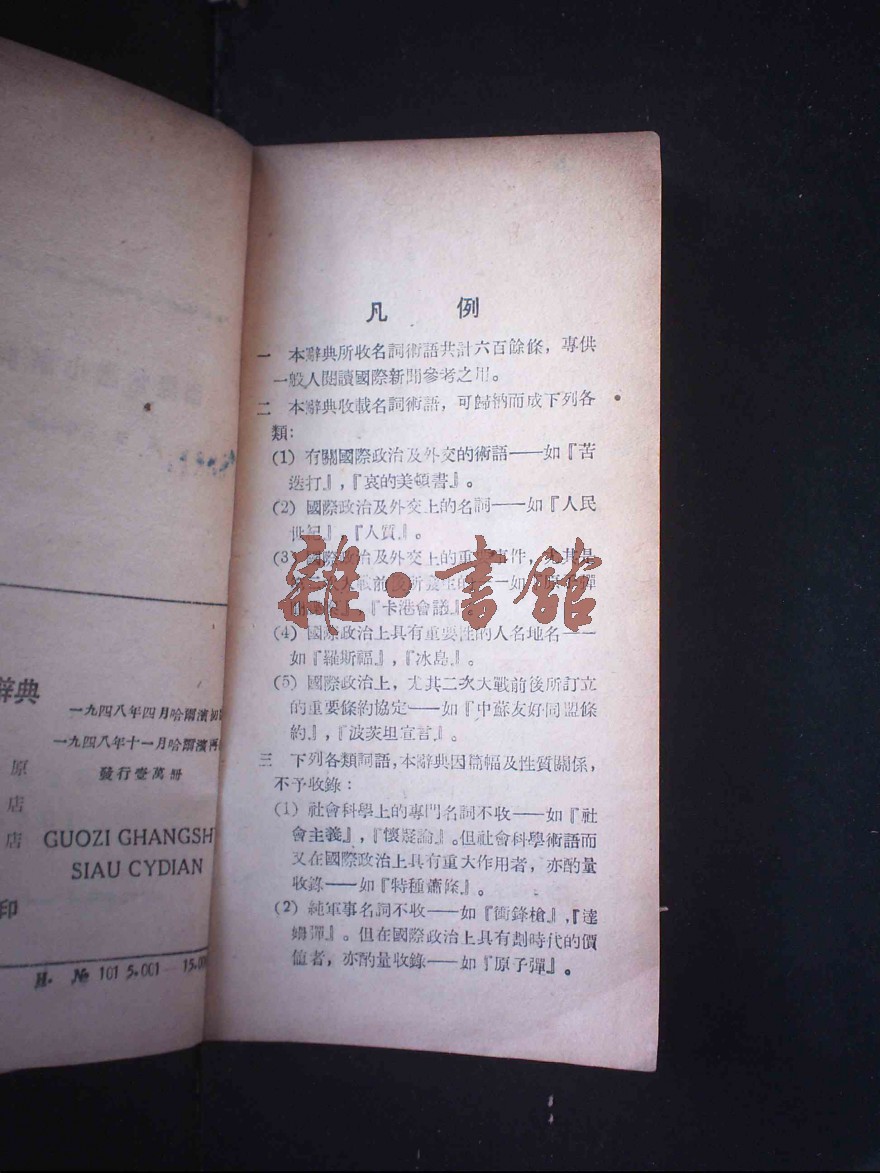 辭典
一九四八年四月哈爾濱初
一九四八年十一月哈爾濱再
原
發行壹萬冊
店
店
GUOZI GHANGSH
SIAU CYDIAN
印
H. № 101 5.001 — 15.00
凡 例
一 本辭典所收名詞術語共計六百餘條，專供
一般人閱讀國際新聞參考之用。
二 本辭典收載名詞術語，可歸納而成下列各
類：
(1) 有關國際政治及外交的術語——如『苦
迭打』，『哀的美頓書』。
(2) 國際政治及外交上的名詞——如『人民
世紀』，『人質』。
(3) 國際政治及外交上的重要事件，尤其是
大戰前後所發生的——如『原子彈
』，『卡港會議』
(4) 國際政治上具有重要性的人名地名——
如『羅斯福』，『冰島』。
(5) 國際政治上，尤其二次大戰前後所訂立
的重要條約協定——如『中蘇友好同盟條
約』，『波茨坦宣言』。
三 下列各類詞語，本辭典因篇幅及性質關係，
不予收錄：
(1) 社會科學上的專門名詞不收——如『社
會主義』，『懷疑論』。但社會科學術語而
又在國際政治上具有重大作用者，亦酌量
收錄——如『特種蕭條』。
(2) 純軍事名詞不收——如『衝鋒槍』，『達
姆彈』。但在國際政治上具有劃時代的價
值者，亦酌量收錄——如『原子彈』。
雜·書館